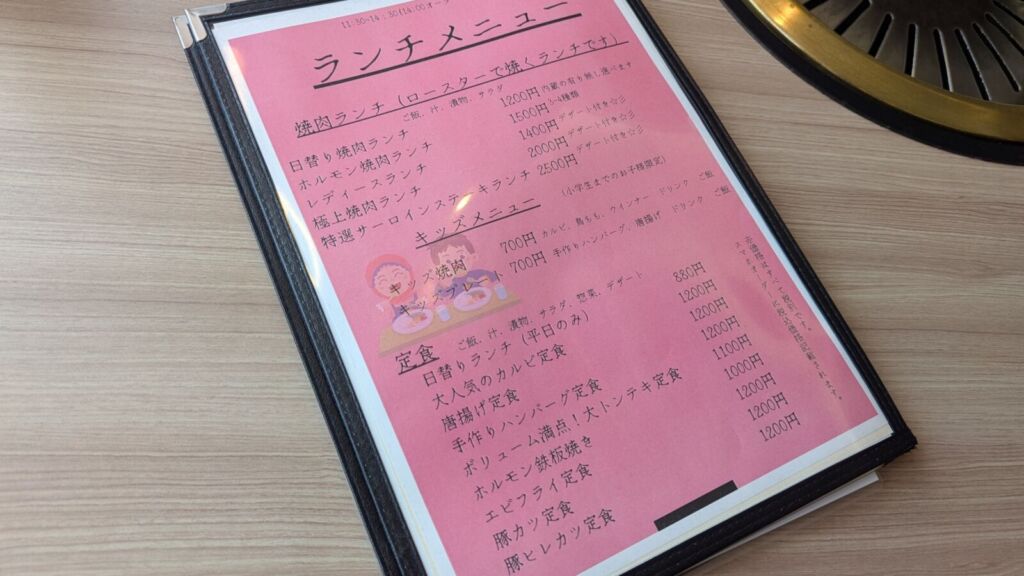 11:30-14:30(14:00オーダー
ランチメニュー
焼肉ランチ(ロースターで焼くランチです)
ご飯、汁、漬物、サラダ
日替り焼肉ランチ 1200円 内蔵の有り無し選べます
ホルモン焼肉ランチ 1500円 3-4種類
レディースランチ 1400円 デザート付き☆彡
極上焼肉ランチ 2000円 デザート付き☆彡
特選サーロインステーキランチ 2500円
キッズメニュー (小学生までのお子様限定)
キッズ焼肉 700円 カルビ、鳥もも、ウインナー ドリンク ご飯
キッズプレート 700円 手作りハンバーグ、唐揚げ ドリンク ご飯
定食 ご飯、汁、漬物、サラダ、惣菜、デザート
日替りランチ(平日のみ) 880円
大人気のカルビ定食 1200円
唐揚げ定食 1200円
手作りハンバーグ定食 1200円
ボリューム満点!大トンテキ定食 1100円
ホルモン鉄板焼き 1000円
エビフライ定食 1200円
豚カツ定食 1200円
豚ヒレカツ定食 1200円